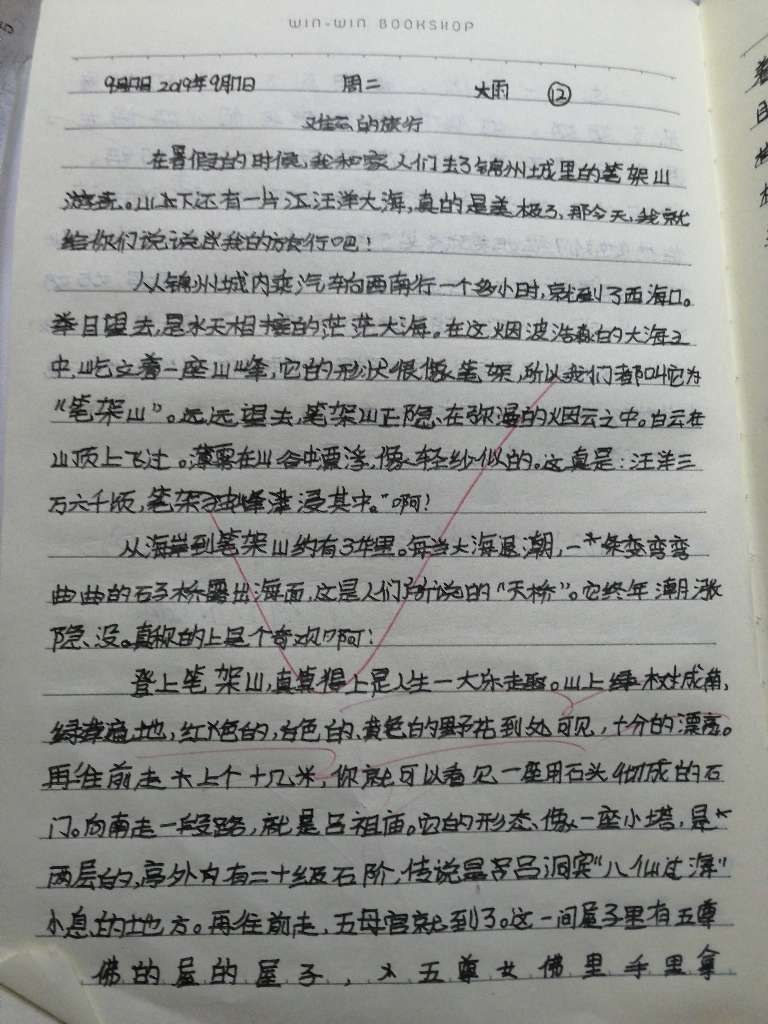 WIN-WIN BOOKSHOP
2019年9月17日 周二 大雨 ⑫
难忘的旅行
在暑假的时候,我和家人们去了锦州城里的笔架山
游玩。山下还有一片汪汪洋大海,真的是美极了,那今天,我就
给你们说说我的旅行吧!
从锦州城内乘汽车向西南行一个多小时,就到了西海口。
举目望去,是水天相接的茫茫大海。在这烟波浩淼的大海之
中,屹立着一座山峰,它的形状很像笔架,所以我们都叫它为
“笔架山”。远远望去,笔架山正隐在弥漫的烟云之中。白云在
山顶上飞过。薄雾在山谷中漂浮,像轻纱似的。这真是:汪洋三
万六千顷,笔架孤峰浸其中。”啊!
从海岸到笔架山约有3华里。每当大海退潮,一条弯弯
曲曲的石子桥露出海面,这是人们所说的“天桥”。它终年潮涨
隐没。真称的上是个奇观啊!
登上笔架山,真算得上是人生一大乐趣。山上绿树成荫,
绿草遍地,红色的,白色的,黄色的野花到处可见,十分的漂亮。
再往前走上个十几米,你就可以看见一座用石头彻成的石
门。向南走一段路,就是吕祖庙。它的形态像一座小塔,是
两层的,亭外有二十级石阶,传说是吕洞宾“八仙过海”
小息的地方。再往前走,五母宫就到了。这一间屋子里有五尊
佛的屋的屋子,五尊女佛里手里拿